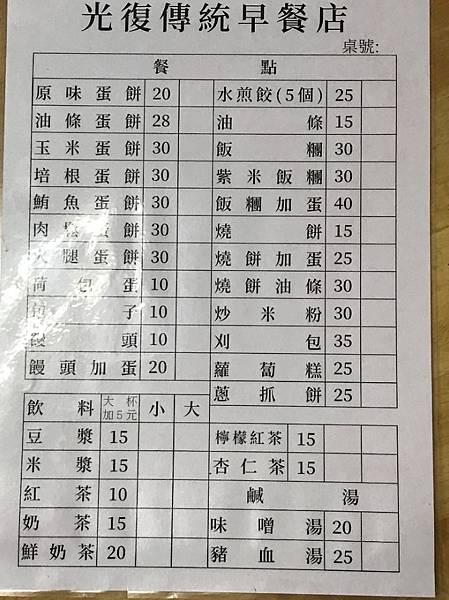 光復傳統早餐店
桌號:
餐 點
原味蛋餅 20 水煎餃(5個) 25
油條蛋餅 28 油條 15
玉米蛋餅 30 飯糰 30
培根蛋餅 30 紫米飯糰 30
鮪魚蛋餅 30 飯糰加蛋 40
肉鬆蛋餅 30 燒餅 15
火腿蛋餅 30 燒餅加蛋 25
荷包蛋 10 燒餅油條 30
包子 10 炒米粉 30
饅頭 10 刈包 35
饅頭加蛋 20 蘿蔔糕 25
蔥抓餅 25
飲料 大杯加5元 小 大
豆漿 15 檸檬紅茶 15
米漿 15 杏仁茶 15
紅茶 10 鹹湯
奶茶 15 味噌湯 20
鮮奶茶 20 豬血湯 25